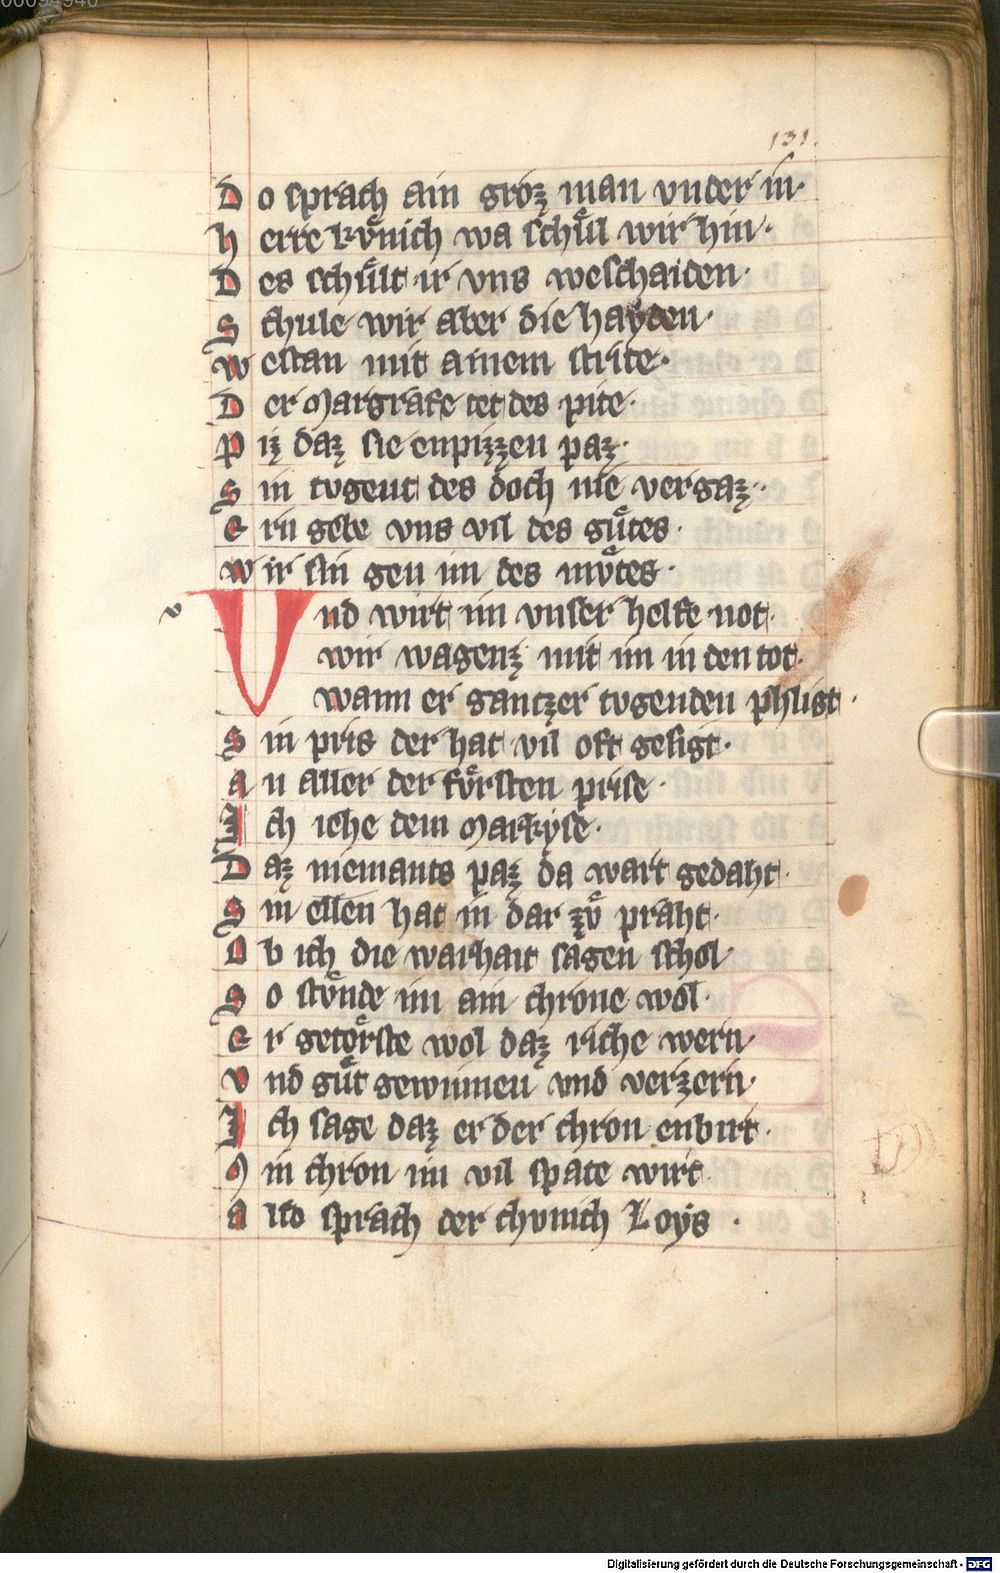 131.
Do sprach ain groz man vnder in·
herre kuͤnich wa schuͤl wir hin·
Des schuͤlt ir vns weschaiden·
Schule wir aber die hayden·
westan mit ainem strite·
Der Margrafe tet des pite·
Piz daz sie enpizzen paz·
Sin tvgent des doch nie vergaz·
Ern gebe vns vil des guͤtes·
wir sin gen im des mvͦtes·
v
Vnd wirt im vnser helfe not·
wir wagenz mit im in den tot·
wann er gantzer tvgenden phligt·
Sin pris der hat vil oft gesigt·
an aller der fvͤrsten prise·
Ich iehe dem Markyse·
Daz niemants paz da wart gedaht·
Sin ellen hat in dar zvͦ praht·
Ob ich die warhait sagen schol·
So stvͤnde im ain chrone wol·
Er getoͤrste wol daz riche wern·
vnd guͤt gewinnen vnd verzern·
Ich sage daz er der chron enbirt·
Min chron im vil spate wirt·
also sprach der chvnich Loys ·
Digitalisierung gefördert durch die Deutsche Forschungsgemeinschaft - DFG